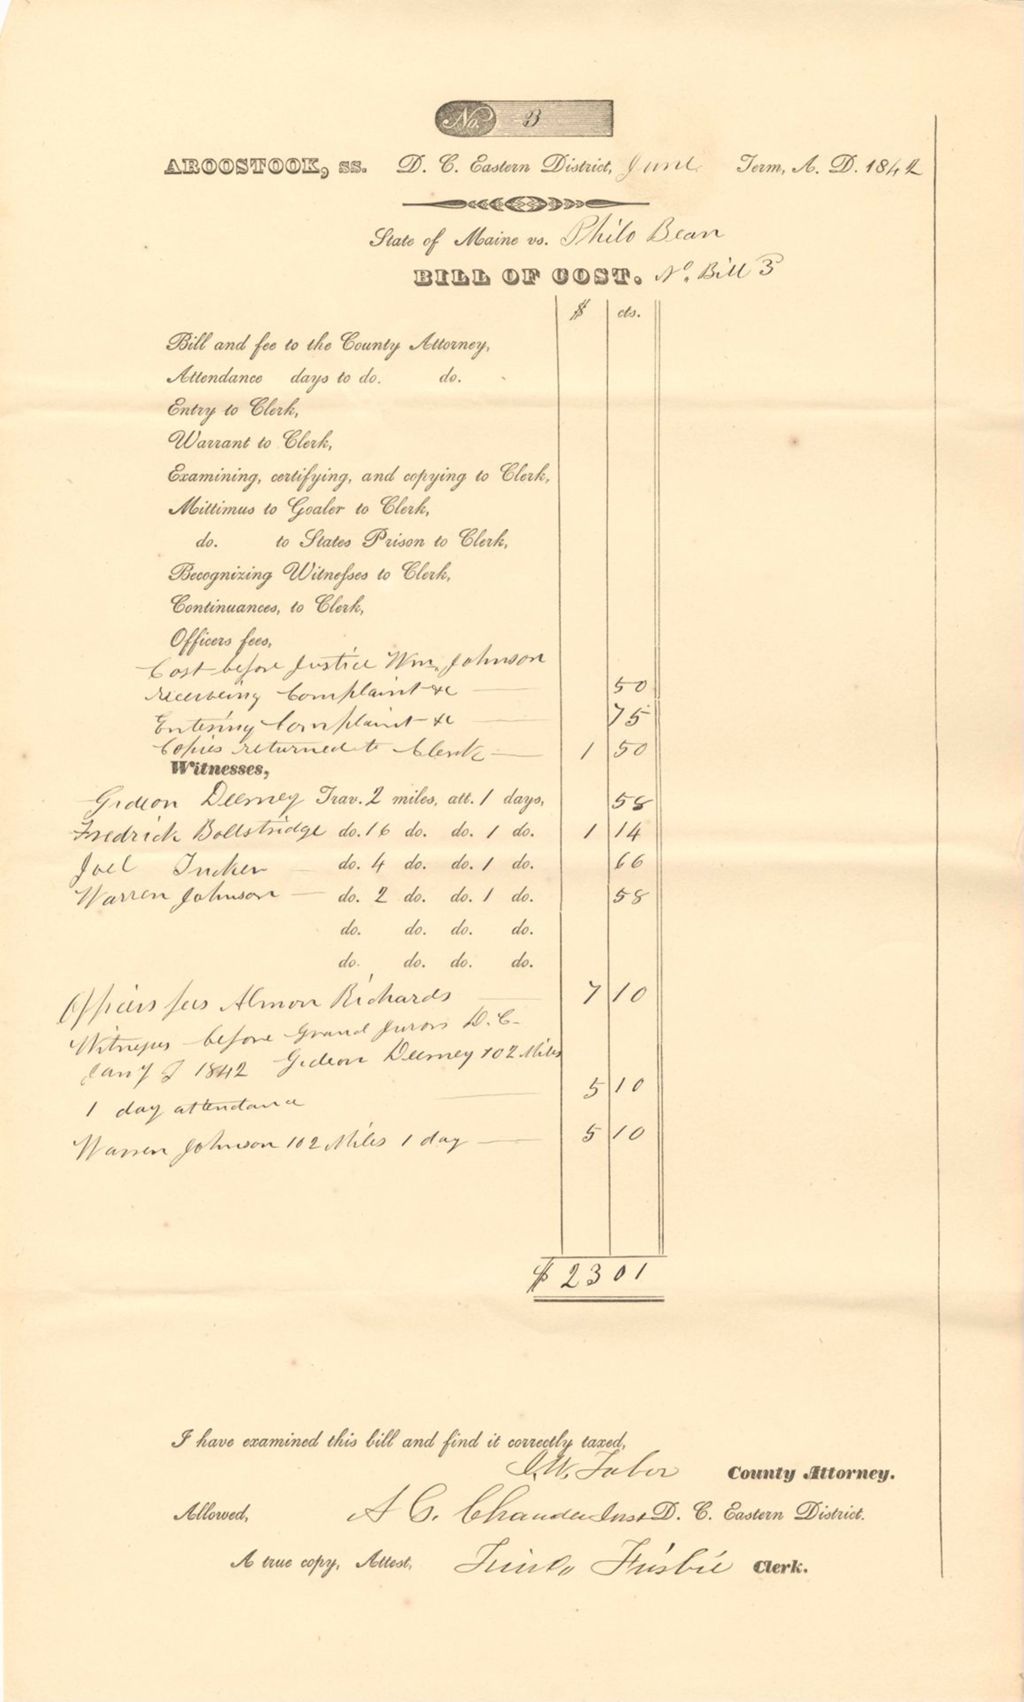 No. 3
AROOSTOOK, ss. D. C. Eastern District, June Term, A. D. 1842
State of Maine vs. Philo Bean
BILL OF COST. No. Bill 3
$ cts.
Bill and fee to the County Attorney,
Attendance days to do. do.
Entry to Clerk,
Warrant to Clerk,
Examining, certifying, and copying to Clerk,
Mittimus to Goaler to Clerk,
do. to States Prison to Clerk,
Recognizing Witnesses to Clerk,
Continuances, to Clerk,
Officers fees,
Cost before Justice Wm. Johnson
receiveing Complaint &c 50
Entering Complaint &c 75
Copies returned to Clerk 1 50
Witnesses,
Gideon Deemey Trav. 2 miles, att. 1 days, 58
Fredrick Bollstridge do. 16 do. do. 1 do. 1 14
Joel Tucker do. 4 do. do. 1 do. 66
Warren Johnson do. 2 do. do. 1 do. 58
do. do. do. do.
do. do. do. do.
Officers fees Almon Richards 7 10
Witnesses before Grand Jurors D. C.
1842 Gideon Deemey 102 Miles
1 day attendance 5 10
Warren Johnson 102 Miles 1 day 5 10
$ 23 01
I have examined this bill and find it correctly taxed,
Tabor County Attorney.
Allowed, A G. Chandler Just D. C. Eastern District.
A true copy, Attest, Frisbie Clerk.